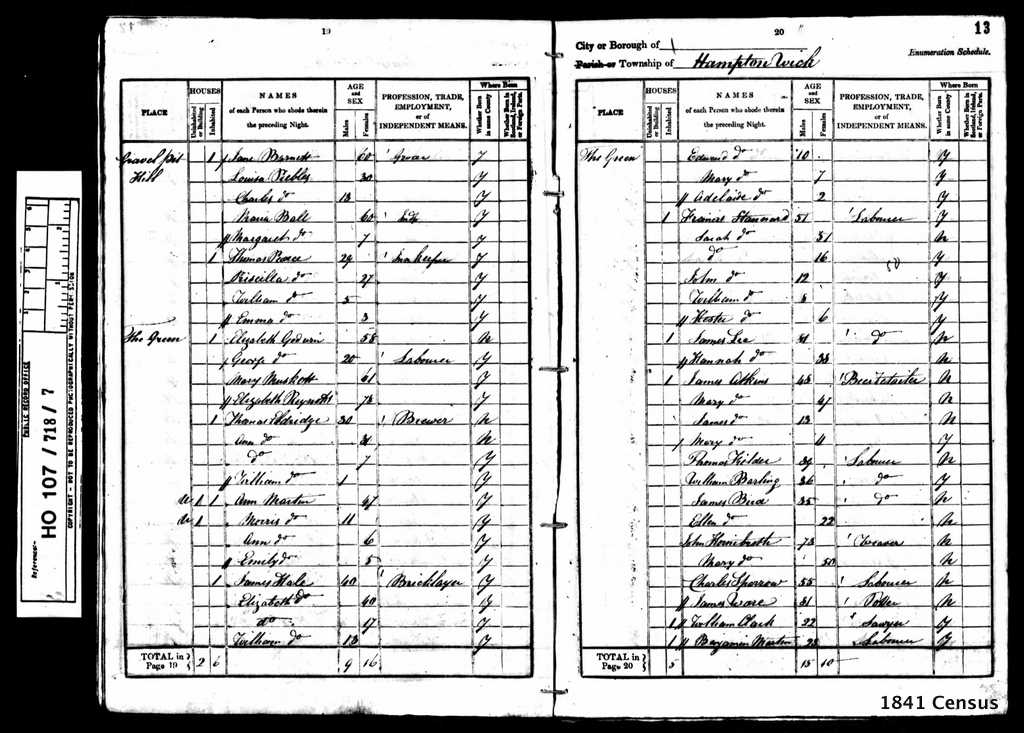 19
PLACE HOUSES Uninhabited or Building Inhabited NAMES of each Person who abode therein the preceding Night. AGE and SEX Males Females PROFESSION, TRADE, EMPLOYMENT, or of INDEPENDENT MEANS. Where Born Whether Born in same County Whether Born in Scotland, Ireland, or Foreign Parts.
Gravel Pit 1 Jane Barnett 60 Y
Hill Louisa 30 Y
Charles do 13 Y
Maria Ball 60 Indt Y
Margaret do 7 Y
1 Thomas Pearce 29 Innkeeper Y
Priscilla do 27 Y
William do 5 Y
Emma do 3 Y
The Green 1 Elizabeth Godwin 58 N
George do 20 Labourer Y
Mary Muskott 61 Y
Elizabeth Reynolds 73 Y
1 Thomas Eldridge 30 Brewer N
Ann do 31 N
do 7 Y
William do 1 Y
U 1 1 Ann Martin 47 Y
U 1 Morris do 11 Y
Ann do 6 Y
Emily do 5 Y
1 James Hale 40 Bricklayer Y
Elizabeth do 40 Y
do 17 Y
William do 13 Y
TOTAL in Page 19 2 6 9 16
20
13
City or Borough of
Parish or Township of Hampton Wick
Enumeration Schedule.
PLACE HOUSES Uninhabited or Building Inhabited NAMES of each Person who abode therein the preceding Night. AGE and SEX Males Females PROFESSION, TRADE, EMPLOYMENT, or of INDEPENDENT MEANS. Where Born Whether Born in same County Whether Born in Scotland, Ireland, or Foreign Parts.
The Green Edward do 10 Y
Mary do 7 Y
Adelaide do 2 Y
1 Francis Stannard 51 Labourer Y
Sarah do 51 N
do 16 Y
John do 12 Y
William do 8 Y
Hester do 6 Y
1 James Lee 31 do N
Hannah do 33 N
1 James Atkins 43 Beer retailer N
Mary do 47 N
James do 13 N
Mary do 11 Y
Thomas Kilder 39 Labourer N
William Barling 36 do Y
James 35 do N
Ellen do 22 N
John Hornibroth 73 Weaver N
Mary do 50 N
Charles Sparrow 55 Labourer N
James Ware 31 Potter N
1 William Clark 22 Sawyer Y
1 Benjamin Martin 25 Labourer Y
TOTAL in Page 20 5 15 10
PUBLIC RECORD OFFICE
Reference:-
HO 107 / 718 / 7
COPYRIGHT - NOT TO BE REPRODUCED PHOTOGRAPHICALLY WITHOUT PERMISSION
1841 Census